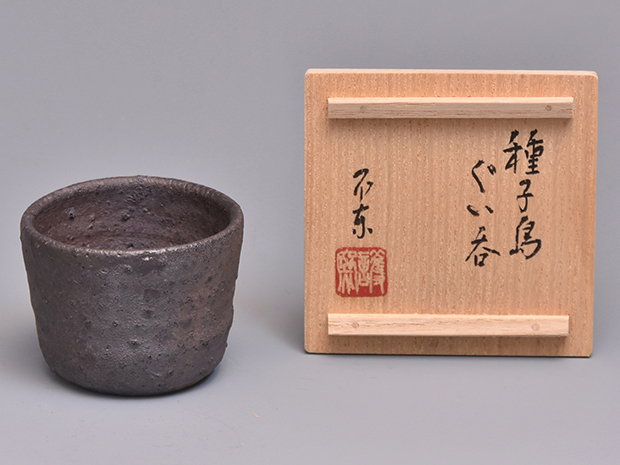 種子島
ぐい呑
不東